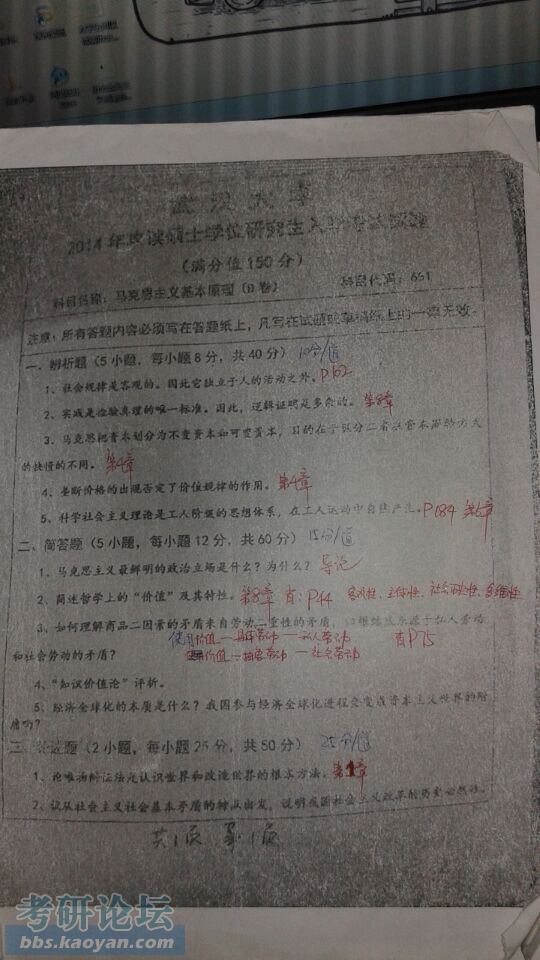 武汉大学
2014年攻读硕士学位研究生入学考试试题
（满分值150分）
科目名称：马克思主义基本原理（B卷） 科目代码：651
注意：所有答题内容必须写在答题纸上，凡写在试题或草稿纸上的一律无效。
一、辨析题（5小题，每小题8分，共40分） 10分/值
1、社会规律是客观的。因此它独立于人的活动之外。P62
2、实践是检验真理的唯一标准。因此，逻辑证明是多余的。第8章
3、马克思把资本划分为不变资本和可变资本，目的在于区分二者
的快慢的不同。第4章
4、垄断价格的出现否定了价值规律的作用。第4章
5、科学社会主义理论是工人阶级的思想体系，在工人运动中自然产生。P184 第6章
二、简答题（5小题，每小题12分，共60分） 15分/值
1、马克思主义最鲜明的政治立场是什么？为什么？导论
2、简述哲学上的“价值”及其特性。第8章 肖：P44 客观性、主体性、社会历史性、多维性
3、如何理解商品二因素的矛盾来自劳动二重性的矛盾，归根结底源于私人劳动
使用价值—具体劳动—私人劳动 肖P75
和社会劳动的矛盾？
价值—抽象劳动—社会劳动
4、“知识价值论”评析。
5、经济全球化的本质是什么？我国参与经济全球化进程会变成资本主义世界的附
庸吗？
三、论述题（2小题，每小题25分，共50分） 25分/值
1、论唯物辩证法是认识世界和改造世界的根本方法。第1章
2、试从社会主义社会基本矛盾的特点出发，说明我国社会主义改革的历史必然性。
共1页 第1页
考研论坛
bbs.kaoyan.com